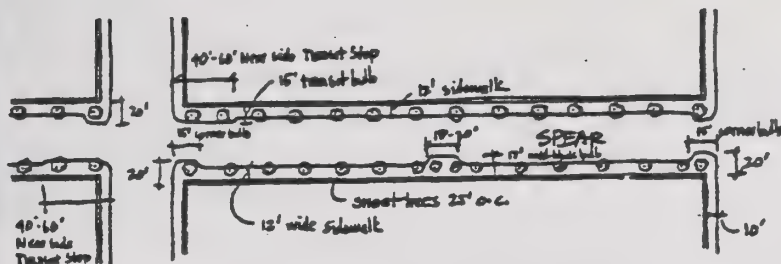 40'-60' Near side Transit Stop
15' transit bulb
12' sidewalk
20'
15' corner bulb
SPEAR
15' corner bulb
20'
20'
street trees 25' o.c.
12' wide sidewalk
40'-60'
Near side
Transit Stop
10'